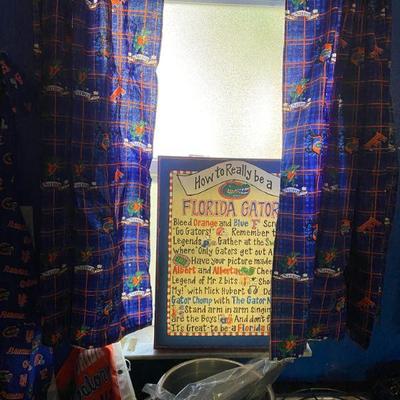 How to Really be a
FLORIDA GATOR
Bleed Orange and Blue
"Go Gators!" Remember t
Legends Gather at the Sw
where "Only Gators get out A
Have your picture made
Albert and Alberta Chee
Legend of Mr. 2 bits
My!" with Mick Hubert Do
Gator Chomp with The Gator N
Stand arm in arm singing
are the Boys! And don't
It's Great to be a Florida G